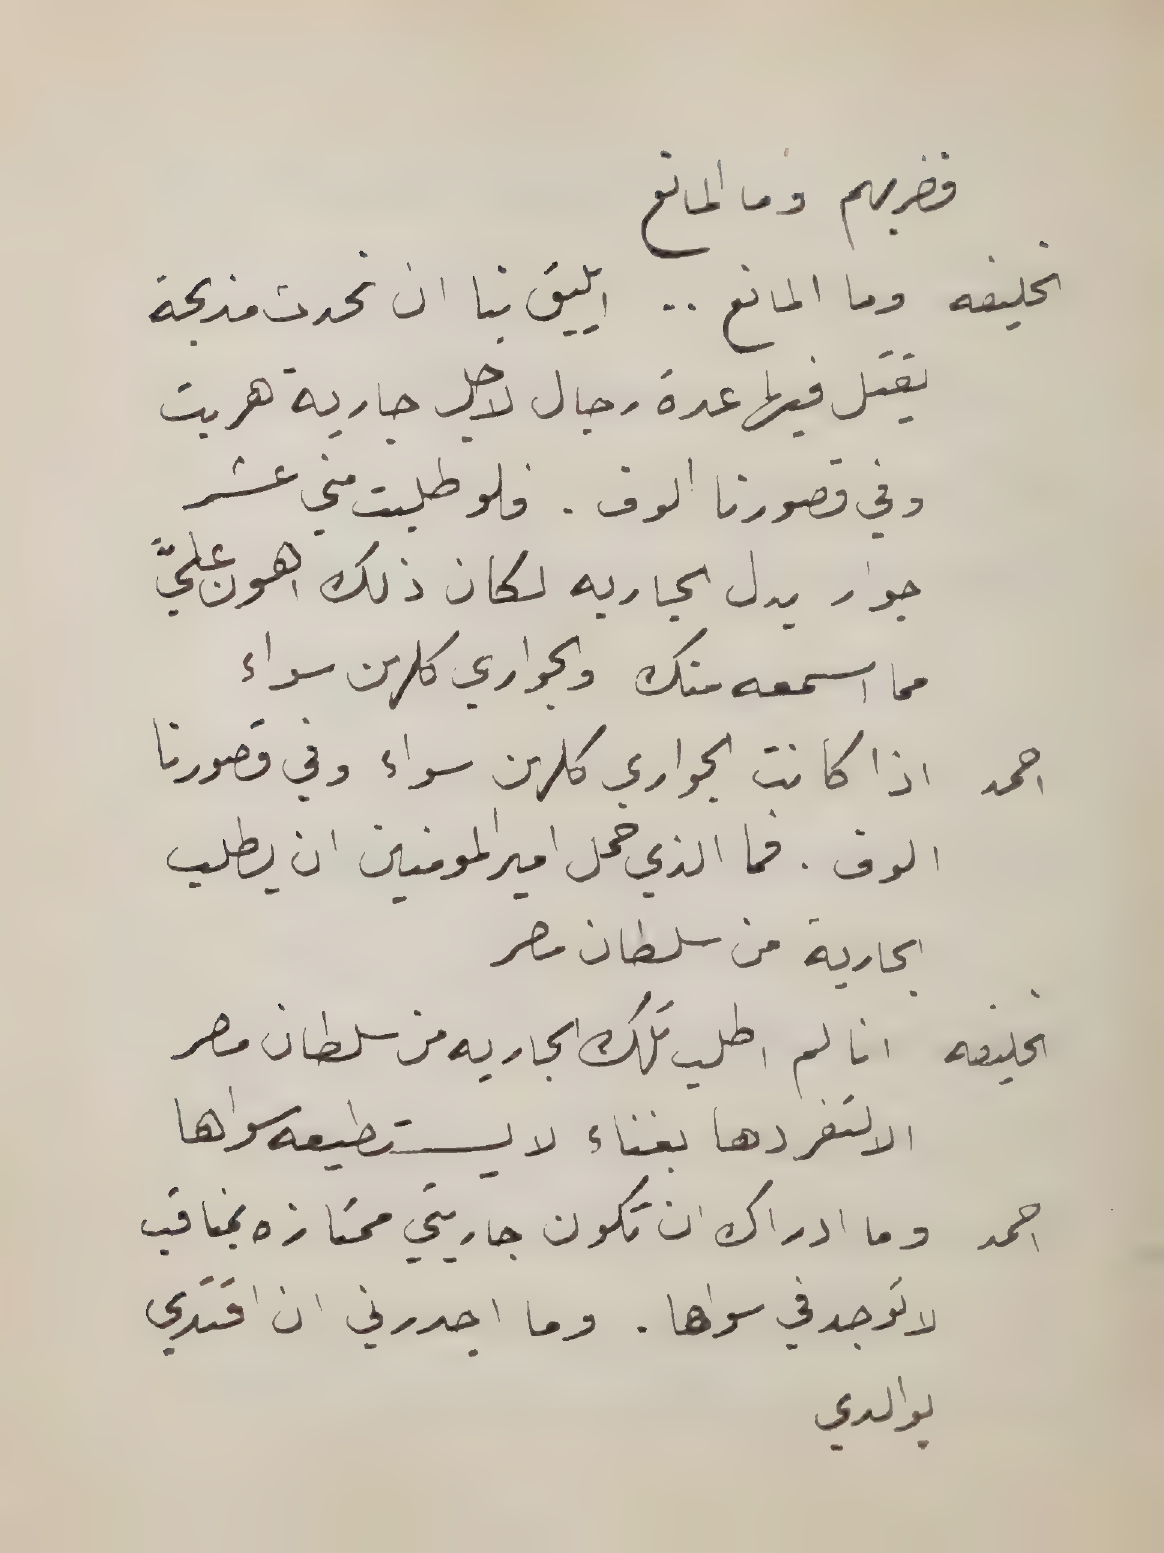 فضربهم وما المانع
الخليفه وما المانع .. ايليق بنا ان نحدث مذبحة
يقتل فيها عدة رجال لاجل جارية هربت
وفي قصورنا الوف . فلو طلبت مني عشر
جوار بدل الجاريه لكان ذلك اهون عليَّ
مما اسمعه منك والجواري كلهن سواء
احمد اذا كانت الجواري كلهن سواء وفي قصورنا
الوف . فما الذي حمل امير المومنين ان يطلب
الجارية من سلطان مصر
الخليفه انا لم اطلب تلك الجاريه من سلطان مصر
الا لتفردها بغناء لا يستطيعه سواها
احمد وما ادراك ان تكون جاريتي ممتازه بمناقب
لا توجد في سواها . وما اجدرني ان اقتدي
بوالدي